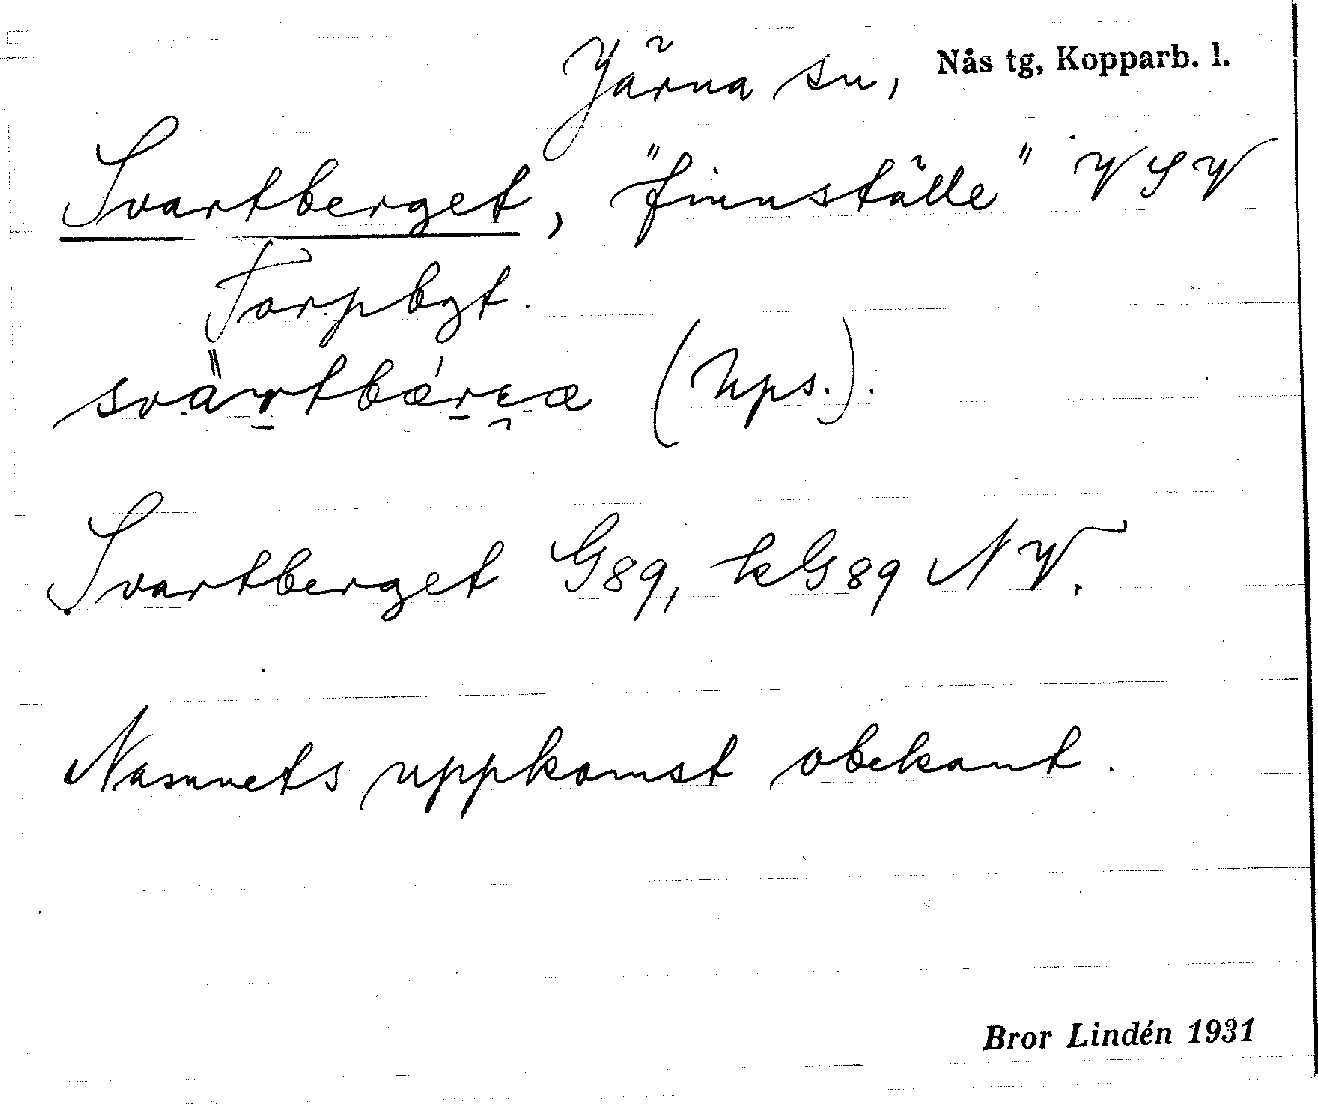 Järna sn, Nås tg, Kopparb. l.
Svartberget, "finnställe" VSV
Torpbgt.
svä̀rtbǽrɕæ (Nps.).
Svartberget G89, kG89 NV.
Namnets uppkomst obekant.
Bror Lindén 1931